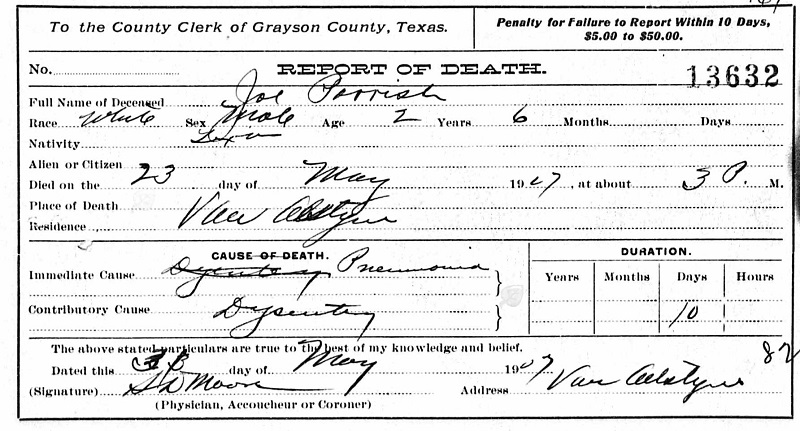 To the County Clerk of Grayson County, Texas.
Penalty for Failure to Report Within 10 Days,
$5.00 to $50.00.
No. REPORT OF DEATH. 13632
Full Name of Deceased Joe Parrish
Race White Sex Male Age 2 Years 6 Months Days
Nativity Texas
Alien or Citizen
Died on the 23 day of May 1907, at about 3 P. M.
Place of Death Van Alstyne
Residence
CAUSE OF DEATH.
Immediate Cause Dysentery Pneumonia
Contributory Cause Dysentery
DURATION.
Years Months Days Hours
10
The above stated particulars are true to the best of my knowledge and belief.
Dated this day of May 1907
(Signature) S D Moore Address Van Alstyne
82
(Physician, Accoucheur or Coroner)